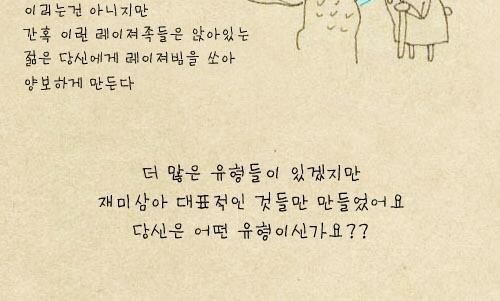 이러는건 아니지만
간혹 이런 레이져족들은 앉아있는
젊은 당신에게 레이져빔을 쏘아
양보하게 만든다
더 많은 유형들이 있겠지만
재미삼아 대표적인 것들만 만들었어요
당신은 어떤 유형이신가요??